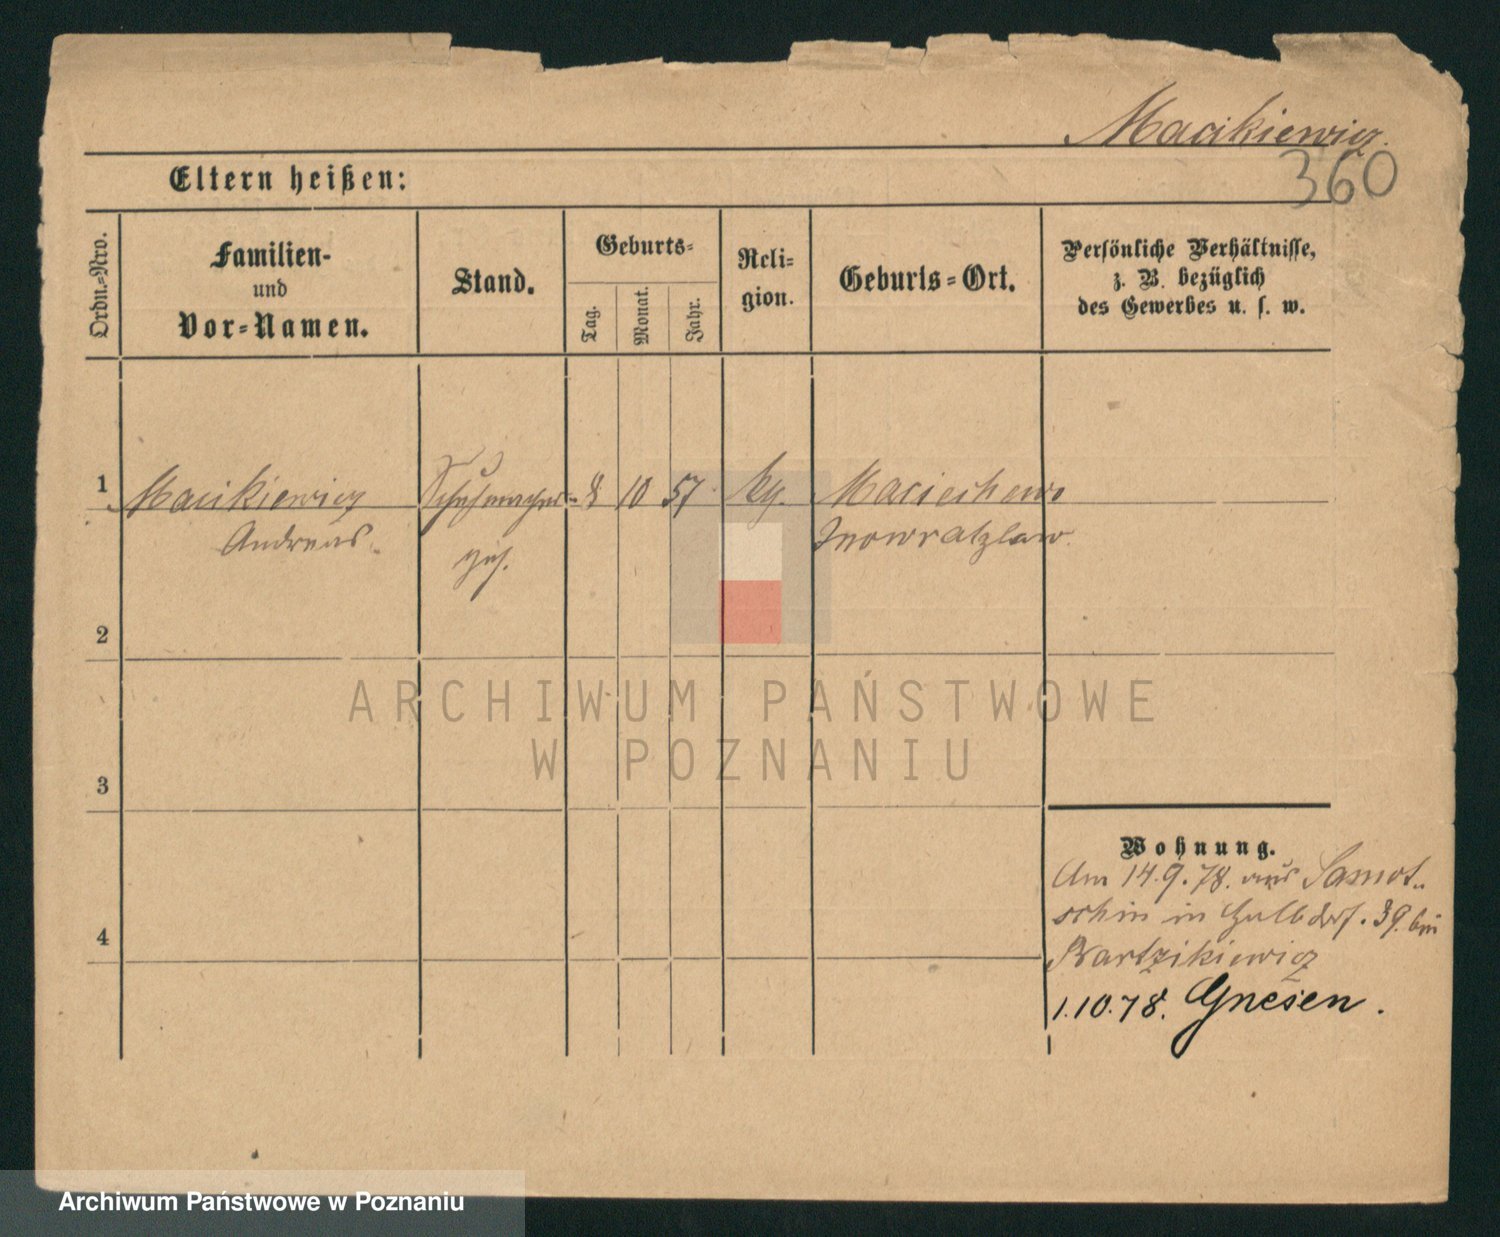 Macikiewicz.
360
Eltern heißen:
Ordn.-Nro.
Familien-
und
Vor-Namen.
Stand.
Geburts-
Tag.
Monat.
Jahr.
Reli-
gion.
Geburts-Ort.
Persönliche Verhältnisse,
z. B. bezüglich
des Gewerbes u. s. w.
1 Macikiewicz Schuhmacher- 8 10 57 Maciechewo
Andreas. ges. Inowratzlaw.
2
3
4
Wohnung.
Am 14.9.78. aus Samot-
schin in 39. bei
Bartzikiewicz
1.10.78. Gnesen.
ARCHIWUM PAŃSTWOWE
W POZNANIU
Archiwum Państwowe w Poznaniu